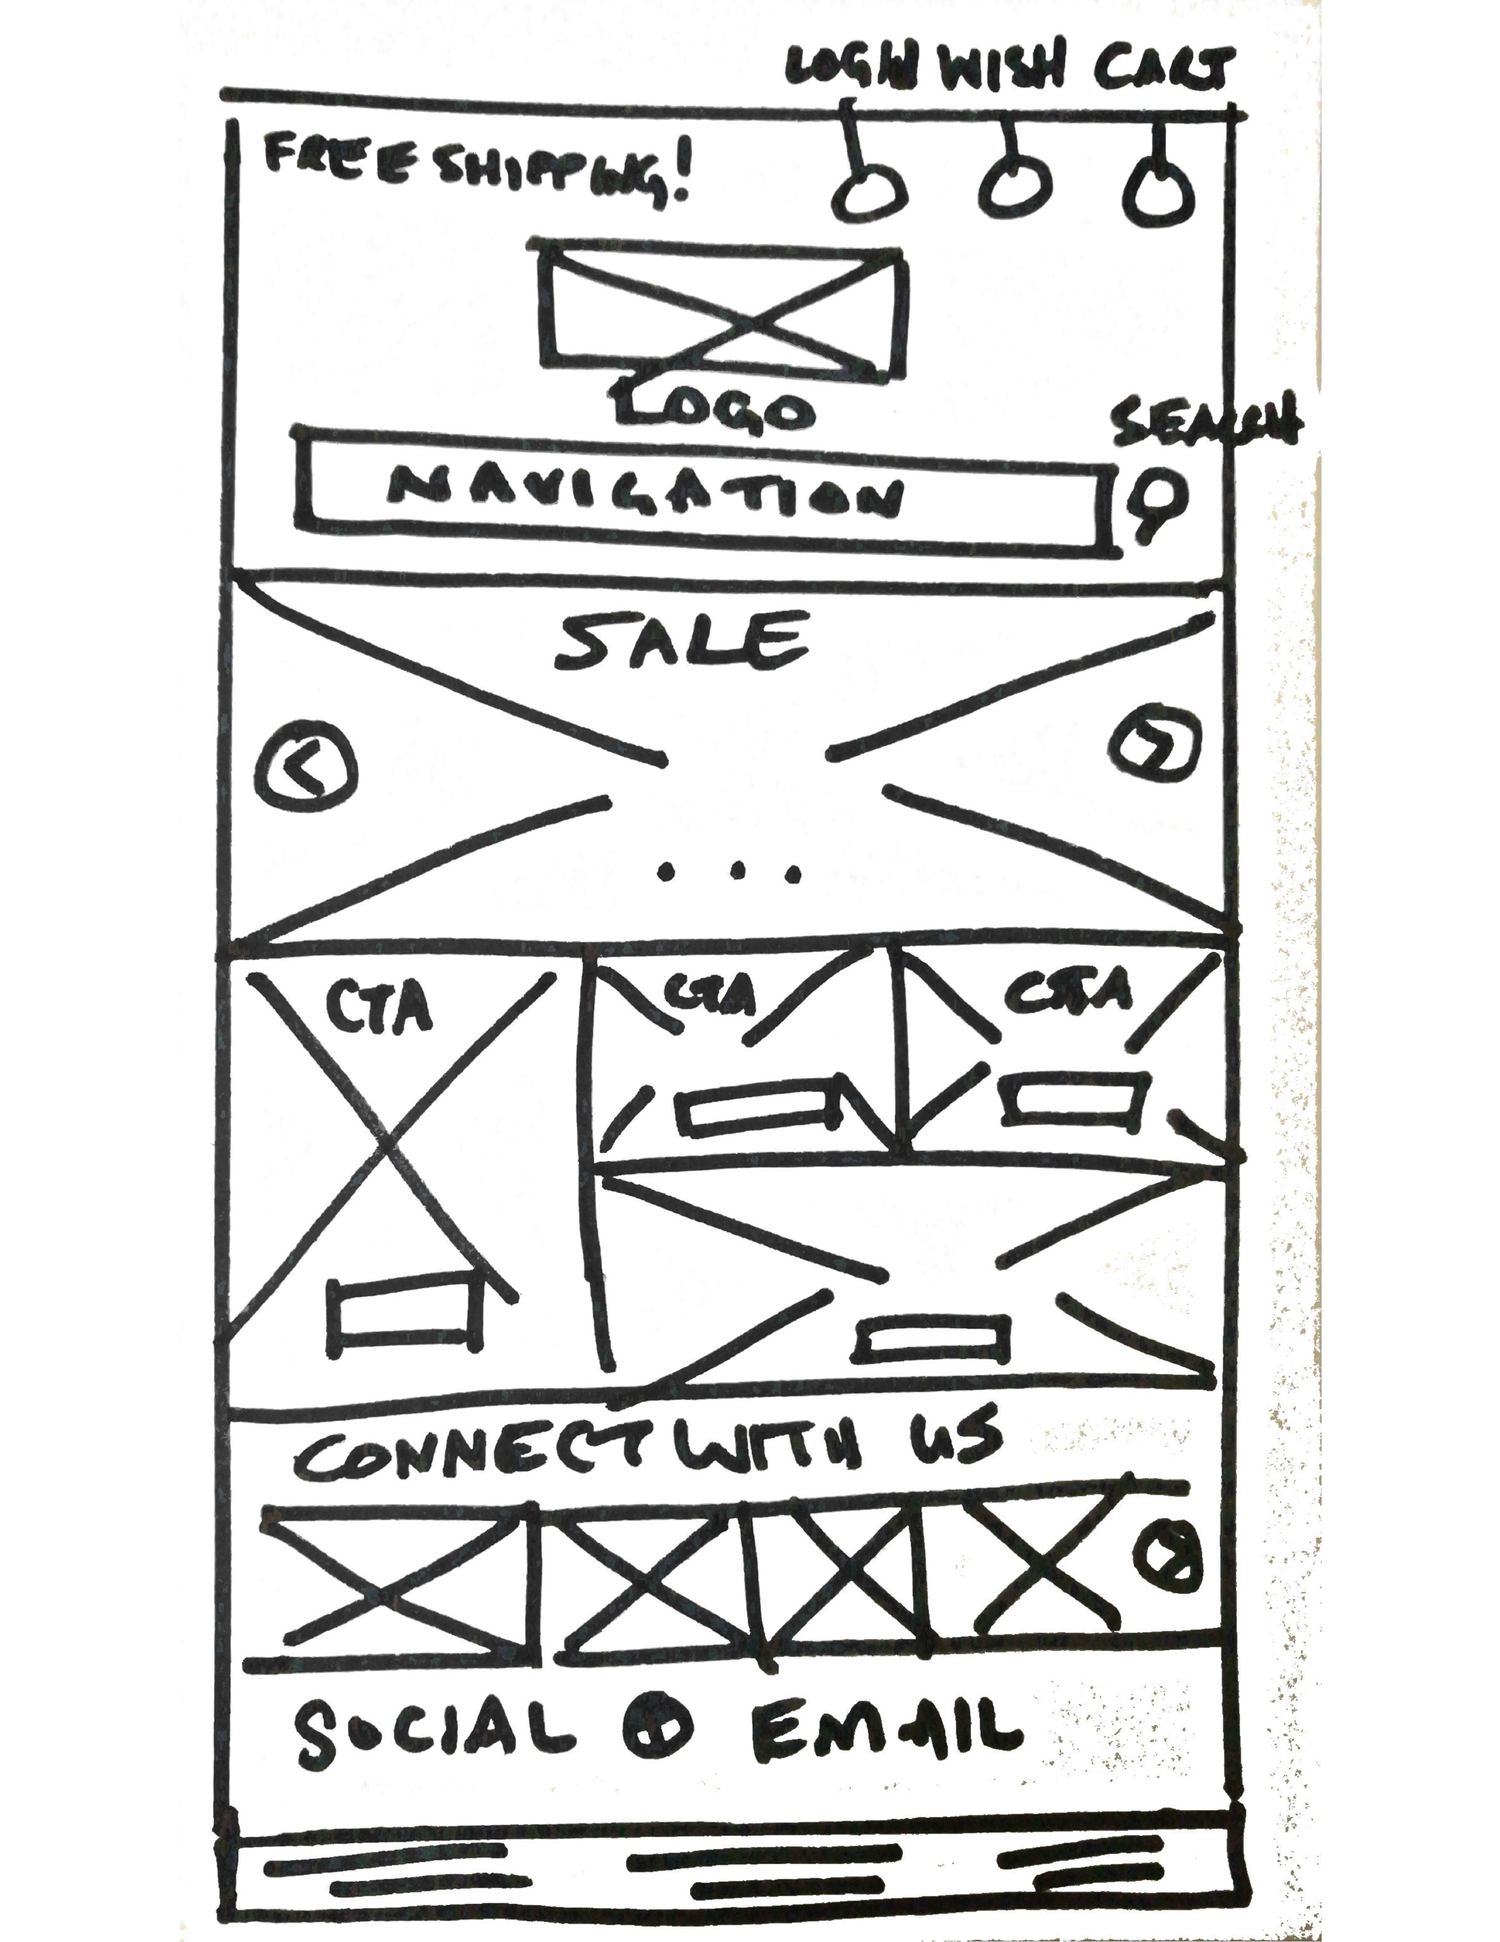 LOGIN WISH CART
FREE SHIPPING!
LOGO
SEARCH
NAVIGATION
SALE
CTA
CTA
CTA
CONNECT WITH US
SOCIAL
EMAIL